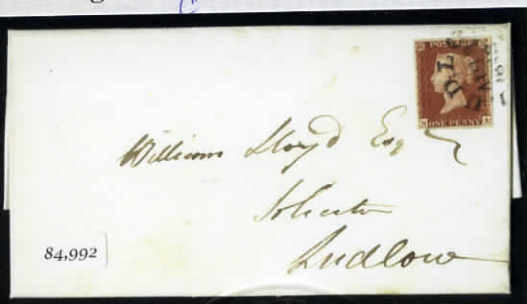 POSTAGE
ONE PENNY
William Lloyd Esq
Solicitor
Ludlow
84,992